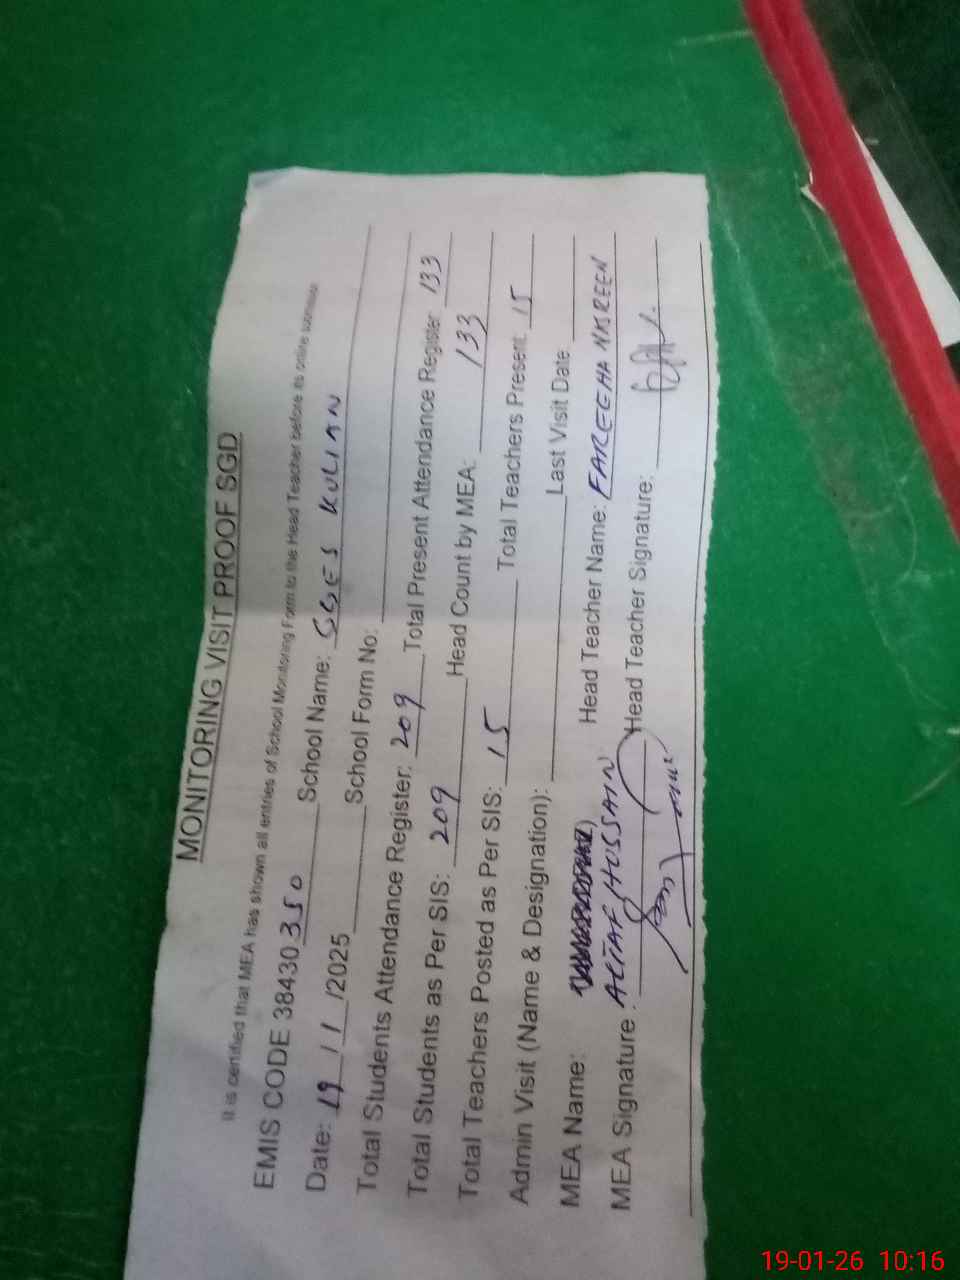 MONITORING VISIT PROOF SGD
It is certified that MEA has shown all entries of School Monitoring Form to the Head Teacher before its online
EMIS CODE 38430350 School Name: GGES KULIAN
Date: 19/1/2025 School Form No:
Total Students Attendance Register: 209 Total Present Attendance Register 133
Total Students as Per SIS: 209 Head Count by MEA: 133
Total Teachers Posted as Per SIS: 15 Total Teachers Present: 15
Admin Visit (Name & Designation): Last Visit Date
MEA Name: ALTAF HUSSAIN Head Teacher Name: FAREEHA NASREEN
MEA Signature: Head Teacher Signature:
19-01-26 10:16